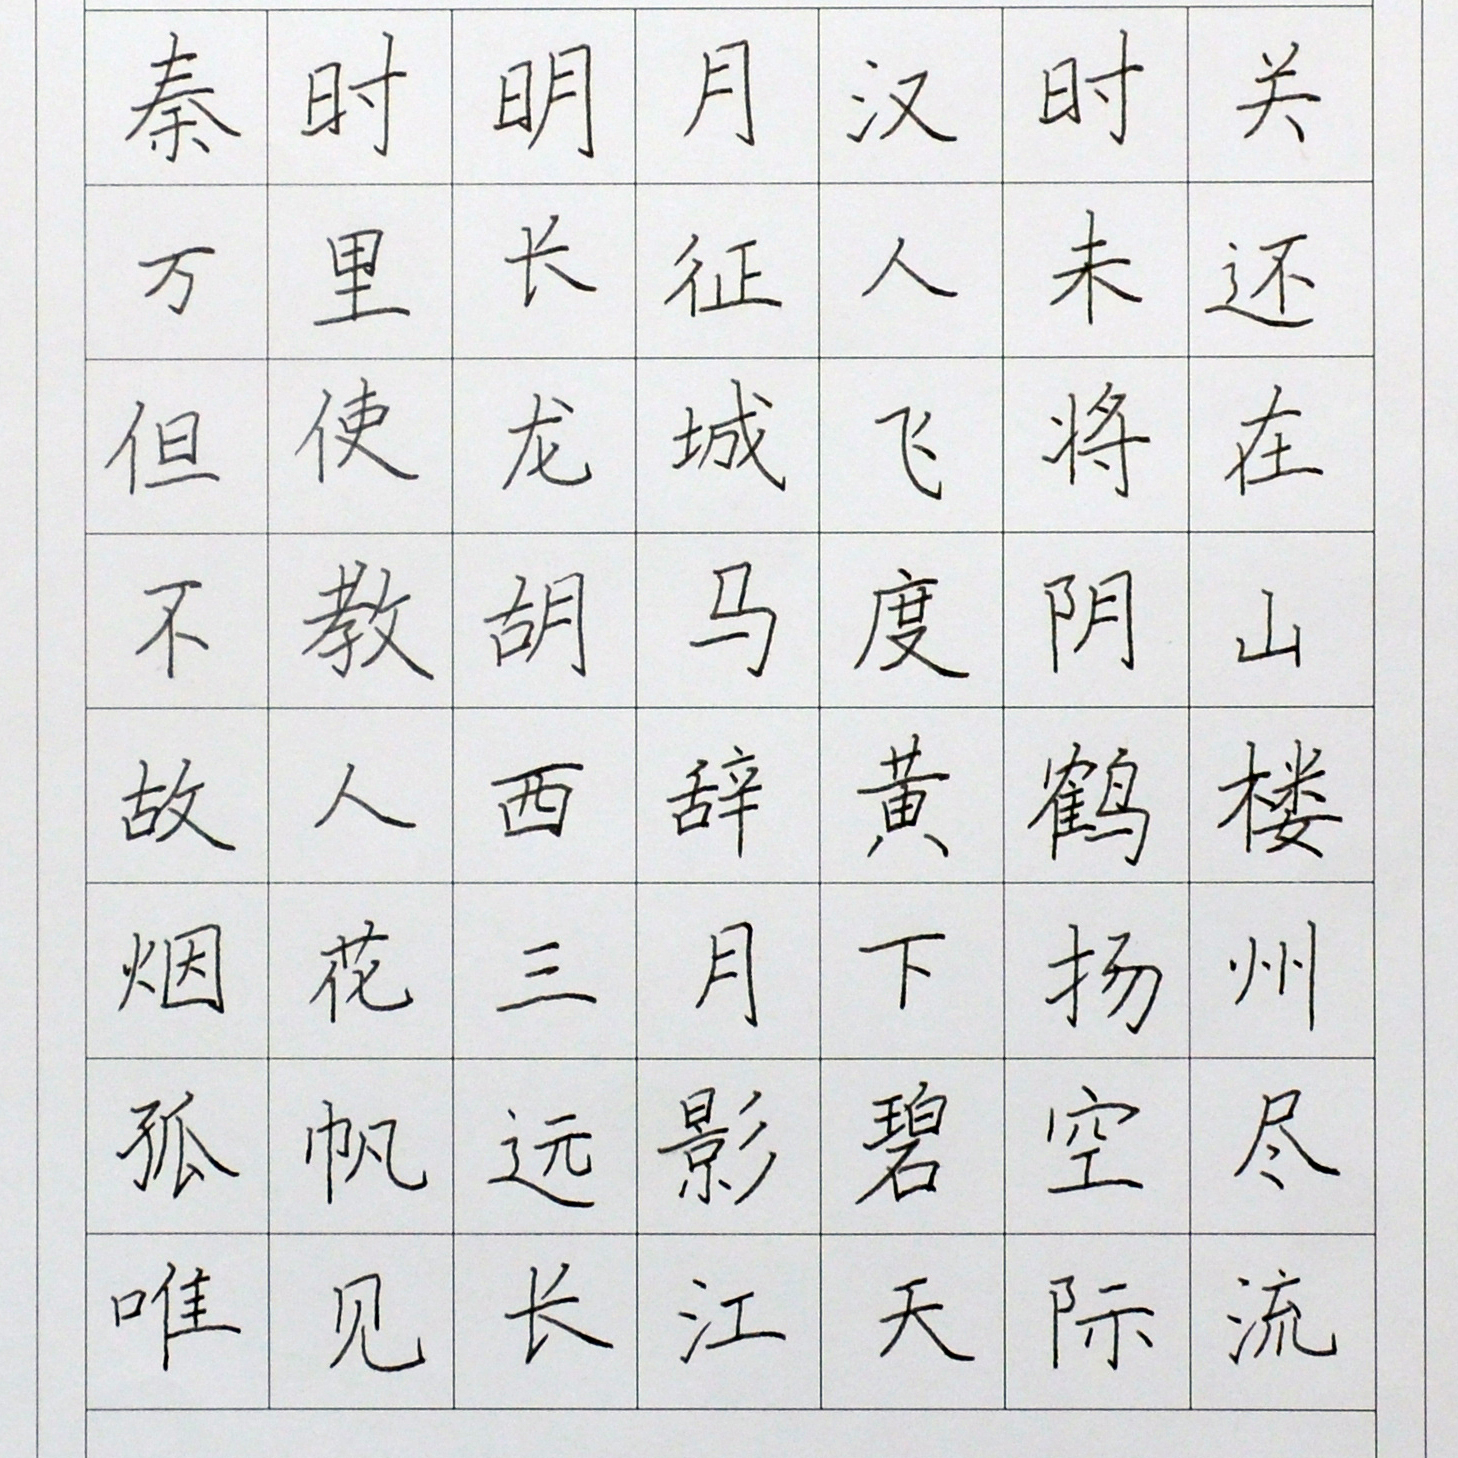 秦时明月汉时关
万里长征人未还
但使龙城飞将在
不教胡马度阴山
故人西辞黄鹤楼
烟花三月下扬州
孤帆远影碧空尽
唯见长江天际流